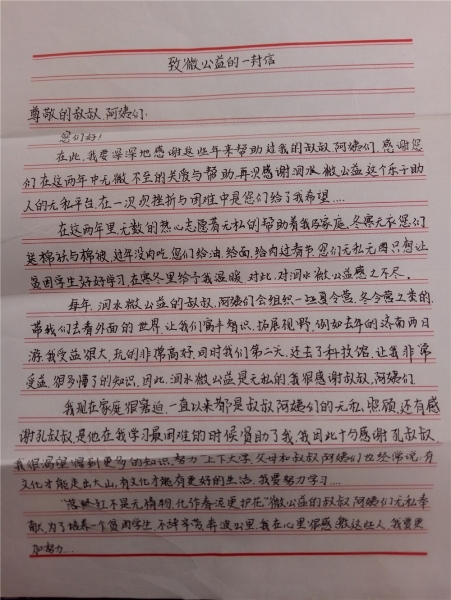 致微公益的一封信
尊敬的叔叔阿姨们:
您们好!
在此,我要深深地感谢这些年来帮助过我的叔叔阿姨们,感谢您
们在这两年中无微不至的关度与帮助,再次感谢泗水微公益这个乐于助
人的无私平台,在一次次挫折与困难中是您们给了我希望....
在这两年里无数的热心志愿者无私的帮助着我及家庭,冬寒无衣您们
送棉袄与棉被,过年没肉吃,您们给油,给面,给肉过春节,您们无私无四只想让
贫困学生好好学习,在寒冬里给予我温暖,对此,对泗水微公益感之不尽。
每年,泗水微公益的叔叔,阿姨们会组织一些夏令营,冬令营之类的,
带我们去看外面的世界,让我们富丰知识,拓展视野,例如去年的济南两日
游,我受益很大,玩的非常高兴,同时我们第二天,还去了科技馆,让我非常
受益,很多懂了的知识,因此,泗水微公益是无私的我很感谢叔叔,阿姨们
我现在家庭很窘迫,一直以来都是叔叔阿姨们的无私照顾,还有感
谢孔叔叔,是他在我学习最困难的时候资助了我,我因此十分感谢孔叔叔,
我很渴望得到更多的知识,努力上下大学,父母和叔叔阿姨们也经常说,有
文化才能走出大山,有文化才能有更好的生活,我要努力学习....
"落红不是无情物,化作春泥更护花"微公益的叔叔阿姨们无私奉
献,为了培养一个贫困学生,不辞辛劳奔波出里,我在心里很感激这些人,我要更
加努力....